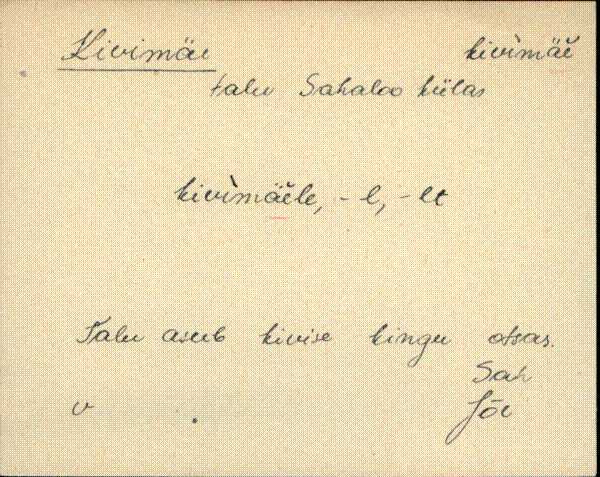 Kivimäe kivìmäě
talu Sahaloo külas
kivìmäěle, -l, -lt
Talu asub kivise kingu otsas.
Sah
v Jõe